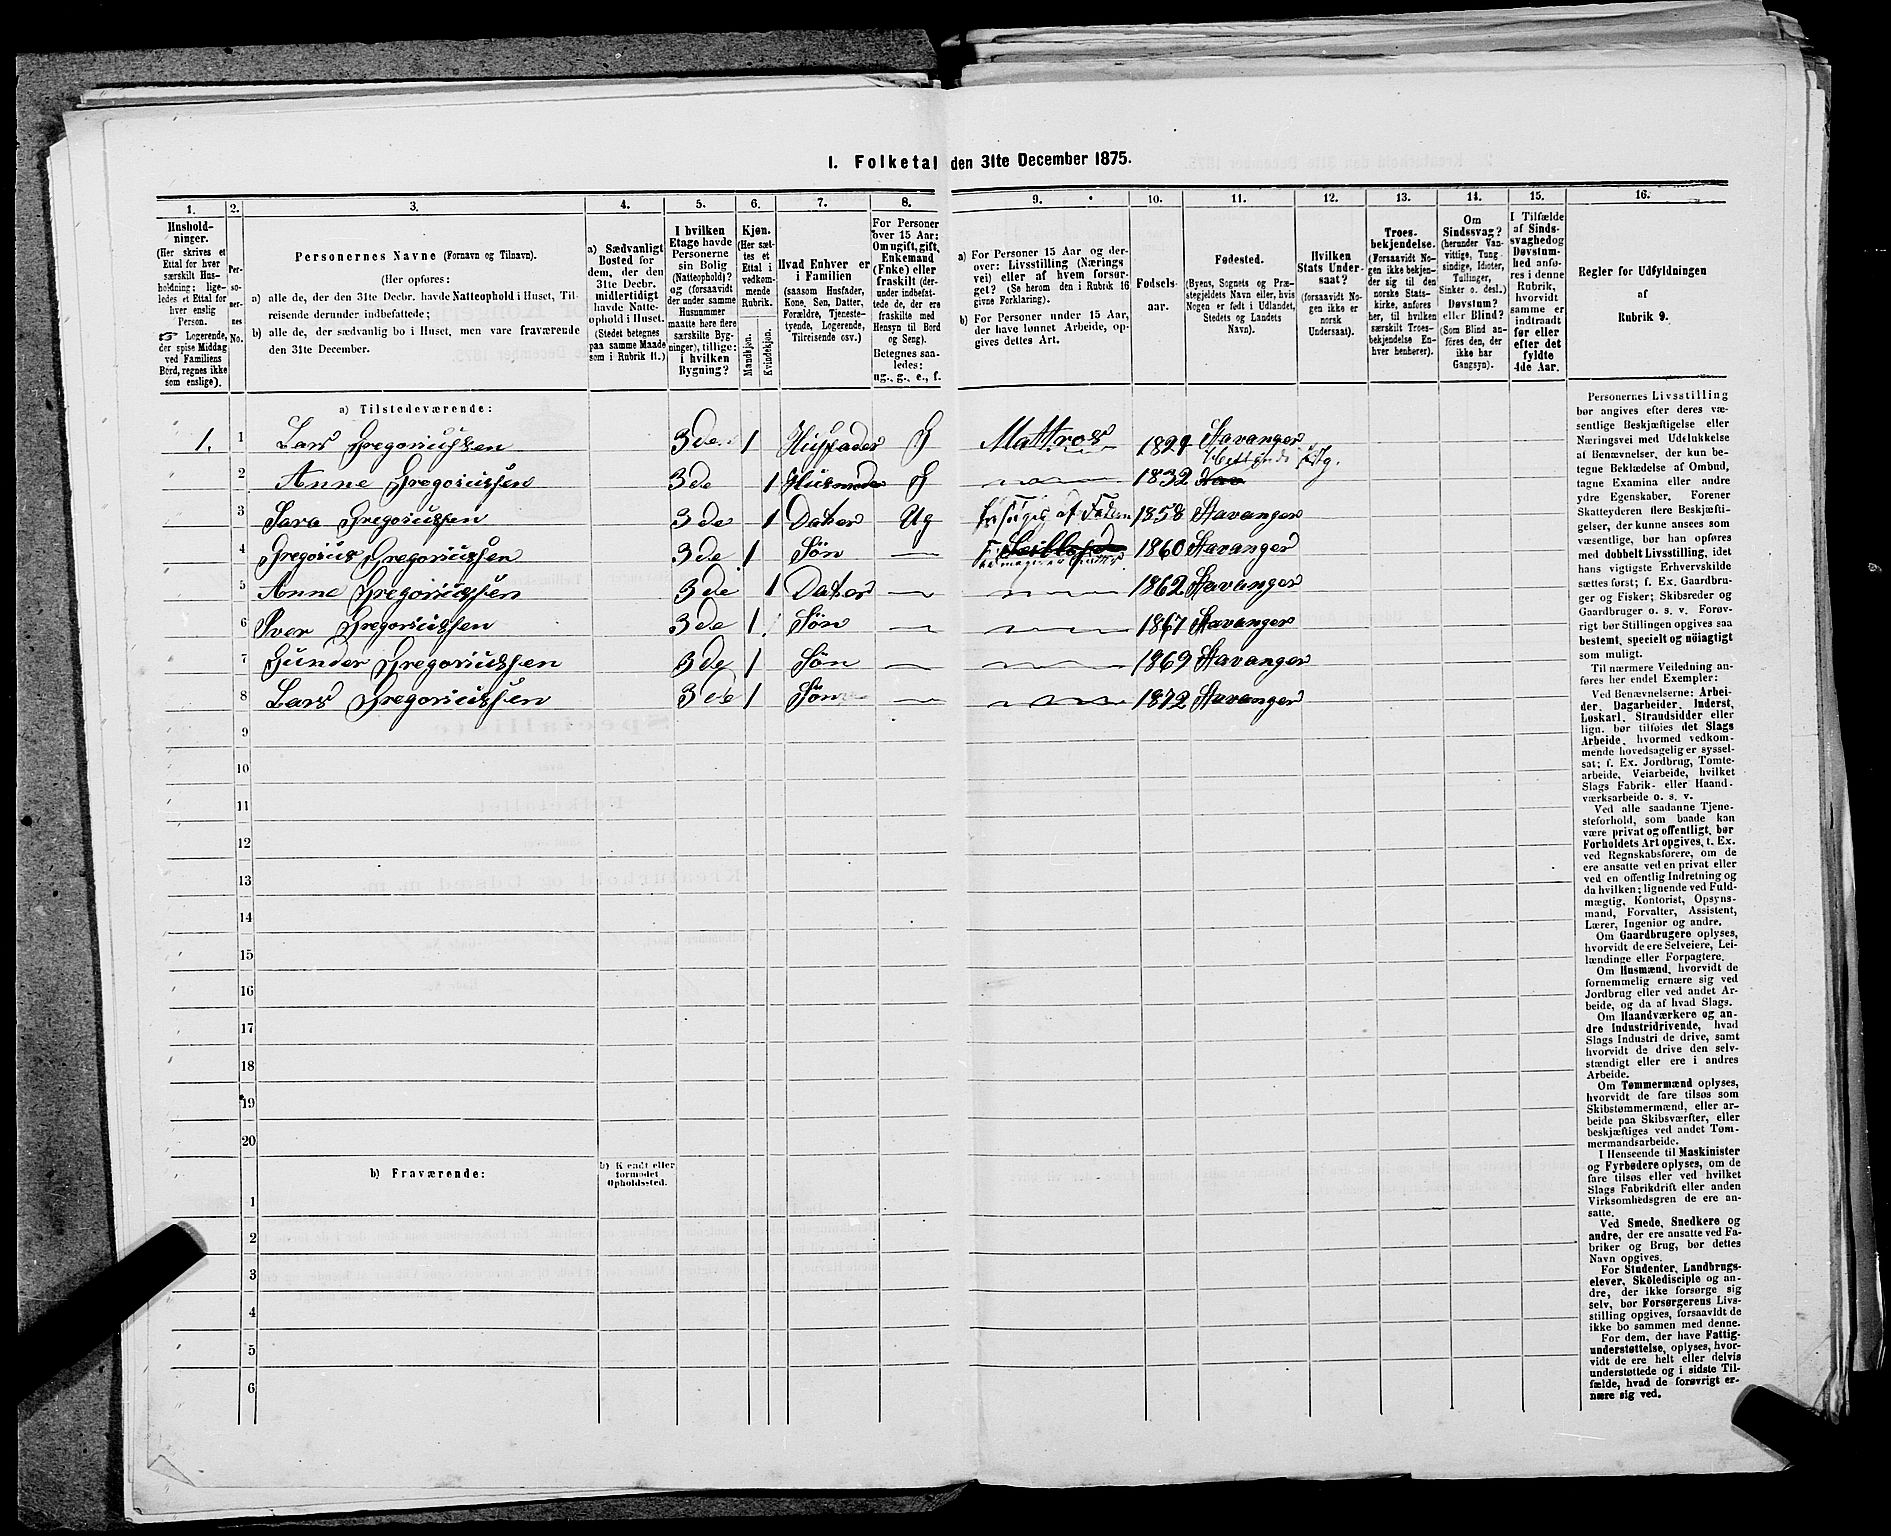 1. Folketal den 31te December 1875.
1. 2. 3. 4. 5. 6. 7. 8. 9. 10. 11. 12. 13. 14. 15. 16.
Hushold-
ninger.
(Her skrives et
Ettal for hver
særskilt Hus-
holdning; lige-
ledes et Ettal for
hver enslig
Person.
Logerende,
der spise Middag
ved Familiens
Bord, regnes ikke
som enslige).
Per-
so-
ner-
nes
No.
Personernes Navne (Fornavn og Tilnavn).
(Her opføres:
a) alle de, der den 31te Decbr. havde Natteophold i Huset, Til-
reisende derunder indbefattede;
b) alle de, der sædvanlig bo i Huset, men vare fraværende
den 31te December.
a) Sædvanligt
Bosted for
dem, der den
31te Decbr.
midlertidigt
havde Natte-
ophold i Huset.
(Stedet betegnes
paa samme Maade
som i Rubrik 11.)
I hvilken
Etage havde
Personerne
sin Bolig
(Natteophold)?
og (forsaavidt
der under samme
Husnummer
maatte høre flere
særskilte Byg-
ninger), tillige:
i hvilken
Bygning?
Kjøn.
(Her sæt-
tes et
Ettal i
vedkom-
mende
Rubrik.
Mandkjøn.
Kvindekjøn.
Hvad Enhver er
i Familien
(saasom Husfader,
Kone, Søn, Datter,
Forældre, Tjeneste-
tyende, Logerende,
Tilreisende osv.)
For Personer
over 15 Aar:
Om ugift, gift,
Enkemand
(Enke) eller
fraskilt (der-
under indbefat-
tede de, der ere
fraskilte med
Hensyn til Bord
og Seng).
Betegnes saa-
ledes:
ug., g., e., f.
a) For Personer 15 Aar og der-
over: Livsstilling (Nærings
vei) eller af hvem forsør-
get? (Se herom den i Rubrik 16
givne Forklaring).
b) For Personer under 15 Aar,
der have lønnet Arbeide, op-
gives dettes Art.
Fødsels-
aar.
Fødested.
(Byens, Sognets og Præ-
stegjeldets Navn eller, hvis
Nogen er født i Udlandet,
Stedets og Landets
Navn).
Hvilken
Stats Under-
saat?
(forsaavidt No-
gen ikke er
norsk
Undersaat).
Troes-
bekjendelse.
(Forsaavidt No-
gen ikke bekjen-
der sig til den
norske Stats-
kirke, anføres
her, til hvilken
særskilt Troes-
bekjendelse En-
hver henhører).
Om
Sindssvag?
(herunder Van-
vittige, Tung-
sindige, Idioter,
Tullinger,
Sinker o. desl.)
Døvstum?
eller Blind?
(Som Blind an-
føres den, der
ikke har
Gangsyn).
I Tilfælde
af Sinds-
svaghed og
Døvstum-
hed anfø-
res i denne
Rubrik,
hvorvidt
samme er
indtraadt
før eller
efter det
fyldte
4de Aar.
Regler for Udfyldningen
af
Rubrik 9.
a) Tilstedeværende:
1. 1 Lars Gregoriussen 3de. 1 Husfader G Mattros 1824 Stavanger
2 Anne Gregoriussen 3de 1 Husmoder G 1832
3 Sara Gregoriussen 3de 1 Dater Ug af Faderen 1858 Stavanger
4 Gregorius Gregoriussen 3de 1 Søn 1860 Stavanger
5 Anne Gregoriussen 3de 1 Dater 1862 Stavanger
6 Iver Gregoriussen 3de 1 Søn 1867 Stavanger
7 Gunder Gregoriussen 3de 1 Søn 1869 Stavanger
8 Lars Gregoriussen 3de 1 Søn 1872 Stavanger
9
10
11
12
13
14
15
16
17
18
19
20
b) Fraværende:
b) Kjendt eller
formodet
Opholdssted.
1
2
3
4
5
6
Personernes Livsstilling
bør angives efter deres væ-
sentlige Beskjæftigelse eller
Næringsvei med Udelukkelse
af Benævnelser, der kun be-
tegne Beklædelse af Ombud,
tagne Examina eller andre
ydre Egenskaber. Forener
Skatteyderen flere Beskjæfti-
gelser, der kunne ansees som
væsentlige, bør han opføres
med dobbelt Livsstilling, idet
hans vigtigste Erhvervskilde
sættes først; f. Ex. Gaardbru-
ger og Fisker; Skibsreder og
Gaardbruger o. s. v. Forøv-
rigt bør Stillingen opgives saa
bestemt, specielt og nøiagtigt
som muligt.
Til nærmere Veiledning an-
føres her endel Exempler:
Ved Benævnelserne: Arbei-
der, Dagarbeider, Inderst,
Løskarl, Strandsidder eller
lign. bør tilføies det Slags
Arbeide, hvormed vedkom-
mende hovedsagelig er syssel-
sat; f. Ex. Jordbrug, Tomte-
arbeide, Veiarbeide, hvilket
Slags Fabrik- eller Haand-
værksarbeide o. s. v.
Ved alle saadanne Tjene-
steforhold, som baade kan
være privat og offentligt, bør
Forholdets Art opgives, t. Ex.
ved Regnskabsførere, om de
ere ansatte ved en privat eller
ved en offentlig Indretning og
da hvilken; lignende ved Fuld-
mægtig, Kontorist, Opsyns-
mand, Forvalter, Assistent,
Lærer, Ingeniør og andre.
Om Gaardbrugere oplyses,
hvorvidt de ere Selveiere, Lei-
lændinge eller Forpagtere.
Om Husmænd, hvorvidt de
fornemmelig ernære sig ved
Jordbrug eller ved andet Ar-
beide, og da af hvad Slags.
Om Haandværkere og an-
dre Industridrivende, hvad
Slags Industri de drive, samt
hvorvidt de drive den selv-
stændigt eller ere i andres
Arbeide.
Om Tømmermænd oplyses,
hvorvidt de fare tilsøs som
Skibstømmermænd, eller ar-
beide paa Skibsværfter, eller
beskjæftiges ved andet Tøm-
mermandsarbeide.
I Henseende til Maskinister
og Fyrbødere oplyses, om de
fare tilsøs eller ved hvilket
Slags Fabrikdrift eller anden
Virksomhedsgren de ere an-
satte.
Ved Smede, Snedkere og
andre, der ere ansatte ved Fa-
briker og Brug, bør dettes
Navn opgives.
For Studenter, Landbrugs-
elever, Skoledisciple og an-
dre, der ikke forsørge sig
selv, bør Forsørgerens Livs-
stilling opgives, forsaavidt de
ikke bo sammen med denne.
For dem, der have Fattig-
understøttelse, oplyses, hvor-
vidt de ere helt eller delvis
understøttede og i sidste Til-
fælde, hvad de forøvrigt er-
nære sig ved.